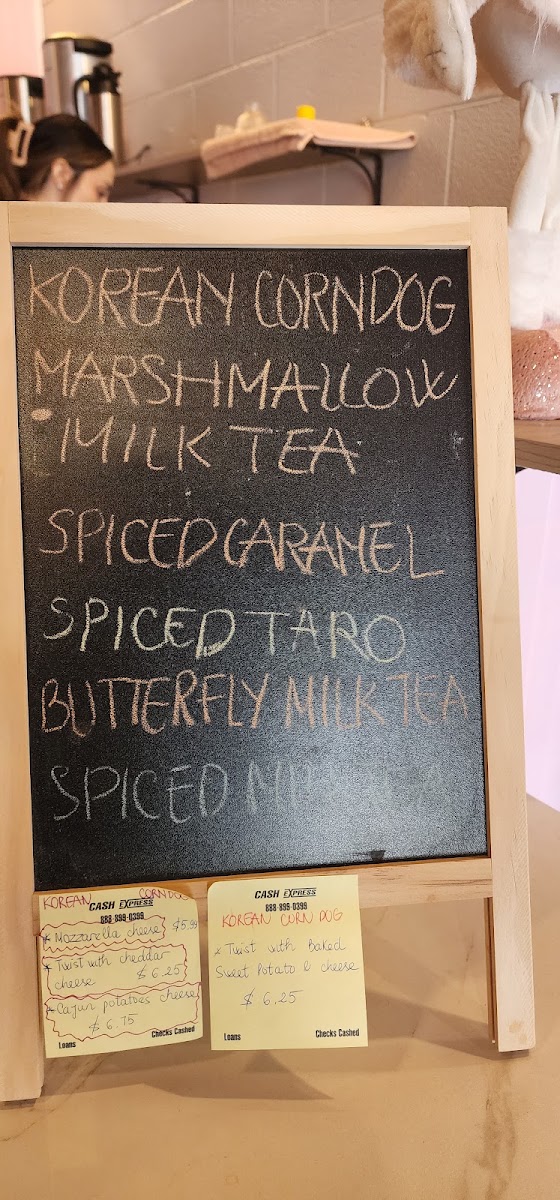 KOREAN CORNDOG
MARSHMALLOW
MILK TEA
SPICED CARAMEL
SPICED TARO
BUTTERFLY MILK TEA
SPICED
KOREAN CORNDOG
CASH EXPRESS
888-899-0399
* Mozzarella cheese $5.99
* Twist with cheddar
cheese $6.25
* Cajun potatoes cheese
$6.75
Loans Checks Cashed
CASH EXPRESS
888-899-0399
KOREAN CORN DOG
* Twist with Baked
Sweet Potato & cheese
$6.25
Loans Checks Cashed